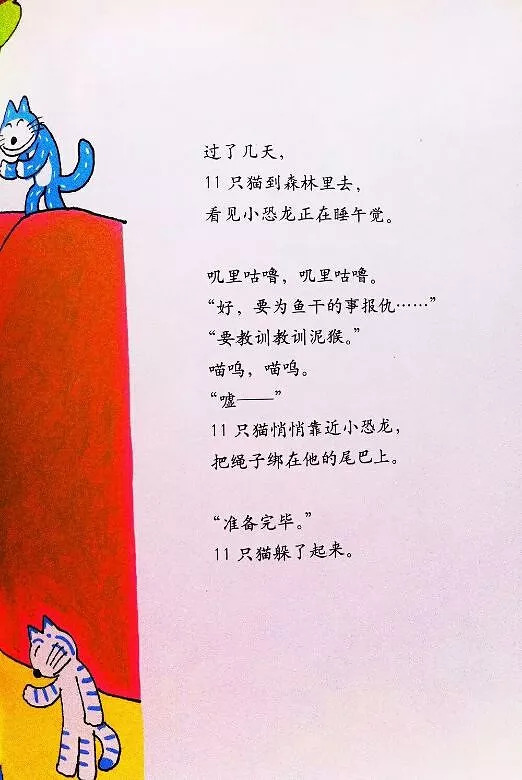 过了几天，
11 只猫到森林里去，
看见小恐龙正在睡午觉。
叽里咕噜，叽里咕噜。
“好，要为鱼干的事报仇……”
“要教训教训泥猴。”
喵呜，喵呜。
“嘘——”
11 只猫悄悄靠近小恐龙，
把绳子绑在他的尾巴上。
“准备完毕。”
11 只猫躲了起来。